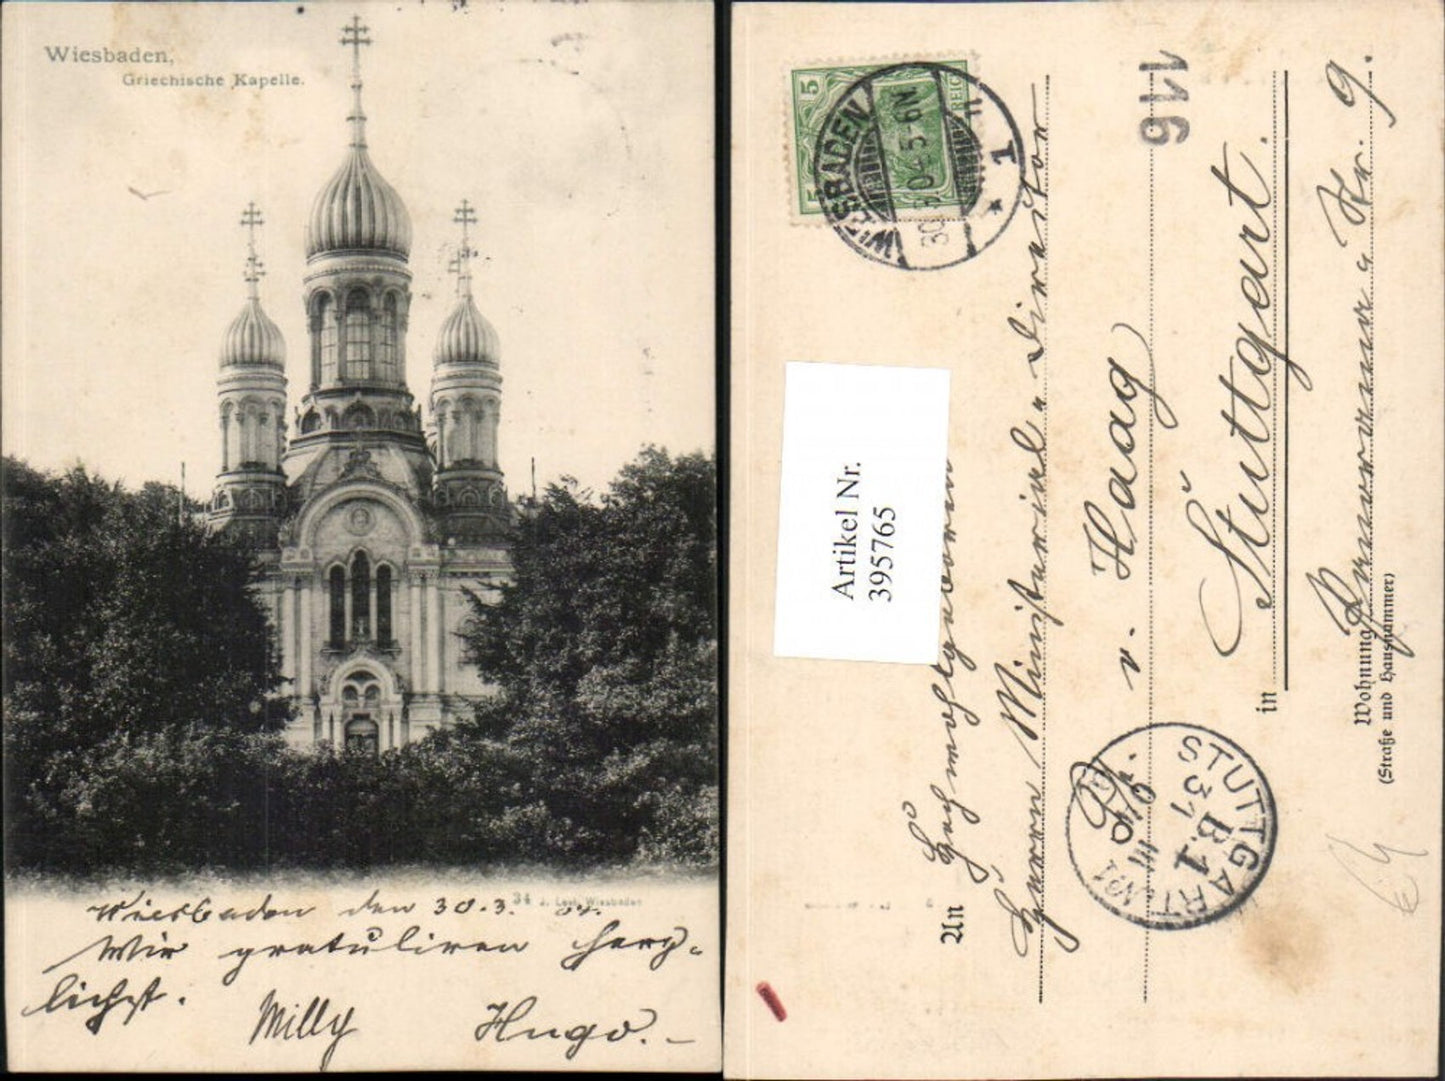 Wiesbaden,
Griechische Kapelle.
34 J. Wiesbaden
Wiesbaden den 30.3. 04.
Wir gratuliren herz-
lichst.
Milly Hugo.
5 REICH 5
WIESBADEN
30.3.04.5-6N
* 1
116
Artikel Nr.
395765
An Hochwohlgeboren
Herrn Ministerial-Direktor
v. Haag
in Stuttgart.
Wohnung Nr. 9.
(Straße und Hausnummer)
STUTTGART No 1
31
III
B.1